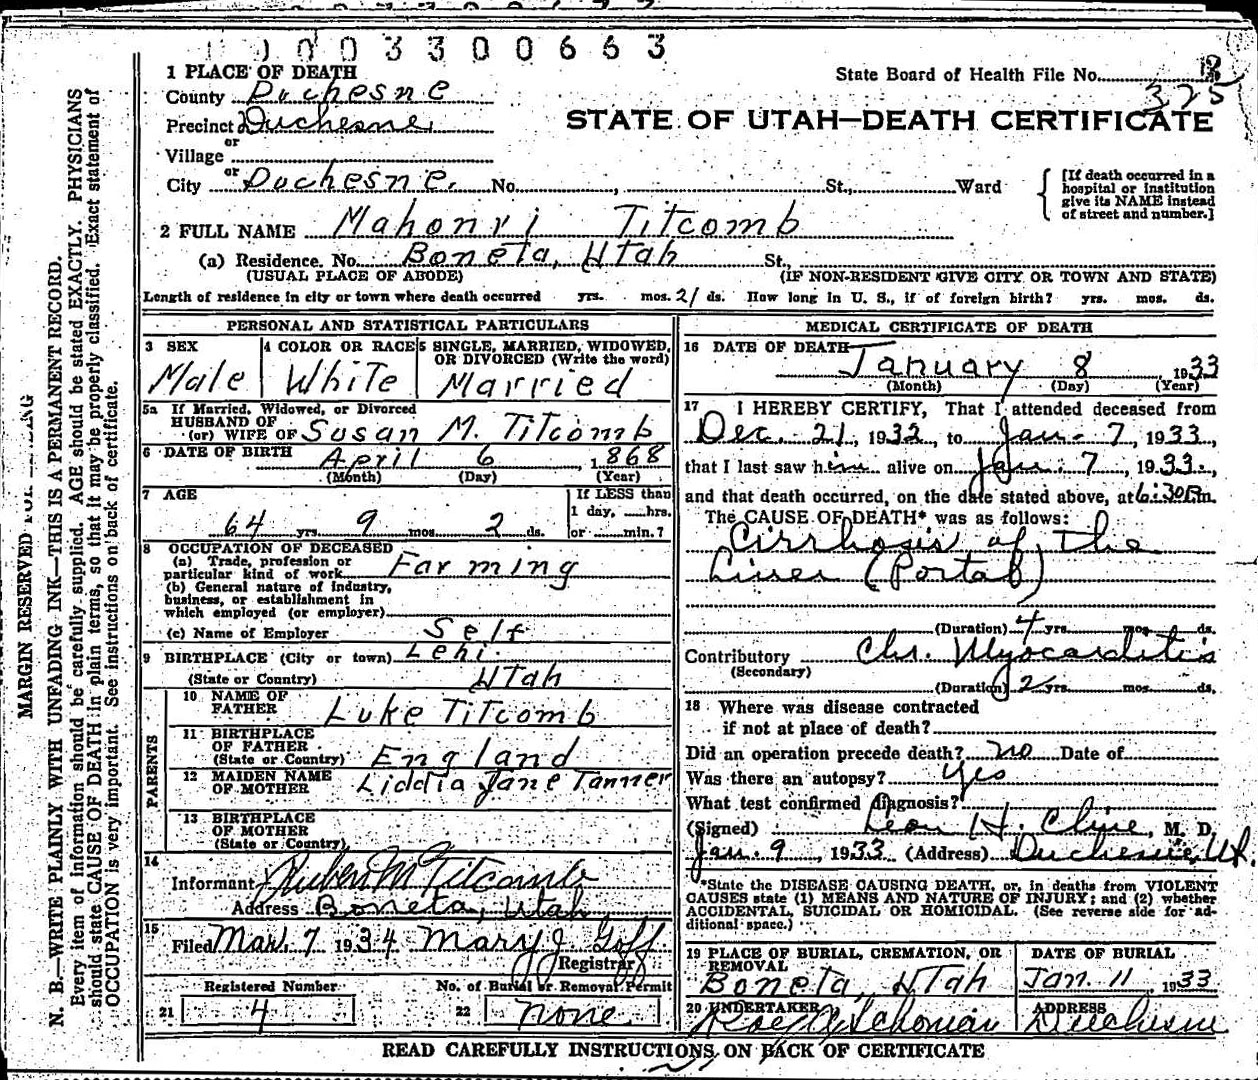 0003300663
1 PLACE OF DEATH
State Board of Health File No.
325
County Duchesne
Precinct Duchesne
STATE OF UTAH—DEATH CERTIFICATE
or
Village
or
City Duchesne. No. , St., Ward
[If death occurred in a hospital or institution give its NAME instead of street and number.]
2 FULL NAME Mahonri Titcomb
(a) Residence. No. Boneta, Utah St.,
(USUAL PLACE OF ABODE) (IF NON-RESIDENT GIVE CITY OR TOWN AND STATE)
Length of residence in city or town where death occurred yrs. mos. 21 ds. How long in U. S., if of foreign birth? yrs. mos. ds.
PERSONAL AND STATISTICAL PARTICULARS
3 SEX 4 COLOR OR RACE 5 SINGLE, MARRIED, WIDOWED,
OR DIVORCED (Write the word)
Male White Married
5a If Married, Widowed, or Divorced
HUSBAND OF
(or) WIFE OF Susan M. Titcomb
6 DATE OF BIRTH April 6, 1868
(Month) (Day) (Year)
7 AGE
If LESS than
1 day, hrs.
64 yrs. 9 mos. 2 ds. or min.?
8 OCCUPATION OF DECEASED
(a) Trade, profession or
particular kind of work Farming
(b) General nature of industry,
business, or establishment in
which employed (or employer)
(c) Name of Employer Self
9 BIRTHPLACE (City or town) Lehi.
(State or Country) Utah
PARENTS
10 NAME OF
FATHER Luke Titcomb
11 BIRTHPLACE
OF FATHER
(State or Country) England
12 MAIDEN NAME
OF MOTHER Liddia Jane Tanner
13 BIRTHPLACE
OF MOTHER
(State or Country)
14
Informant Ruben M Titcomb
Address Boneta, Utah
15
Filed Mar. 7 1934 Mary J Goff
Registrar
Registered Number No. of Burial or Removal Permit
21 4 22 none
MEDICAL CERTIFICATE OF DEATH
16 DATE OF DEATH
January 8 1933
(Month) (Day) (Year)
17 I HEREBY CERTIFY, That I attended deceased from
Dec. 21, 1932, to Jan. 7, 1933,
that I last saw him alive on Jan. 7, 1933.,
and that death occurred, on the date stated above, at 6:30 Pm.
The CAUSE OF DEATH* was as follows:
Cirrhosis of the
Liver (Portal)
(Duration) 4 yrs. mos. ds.
Contributory Chr. Myocarditis
(Secondary)
(Duration) 2 yrs. mos. ds.
18 Where was disease contracted
if not at place of death?
Did an operation precede death? no Date of
Was there an autopsy? yes
What test confirmed diagnosis?
(Signed) Leon H. Cline, M. D.
Jan. 9, 1933 (Address) Duchesne, Ut.
*State the DISEASE CAUSING DEATH, or, in deaths from VIOLENT
CAUSES state (1) MEANS AND NATURE OF INJURY; and (2) whether
ACCIDENTAL, SUICIDAL OR HOMICIDAL. (See reverse side for ad-
ditional space.)
19 PLACE OF BURIAL, CREMATION, OR
REMOVAL
DATE OF BURIAL
Boneta, Utah Jan. 11 1933
20 UNDERTAKER ADDRESS
Duchesne
READ CAREFULLY INSTRUCTIONS ON BACK OF CERTIFICATE
MARGIN RESERVED FOR
N. B.—WRITE PLAINLY WITH UNFADING INK—THIS IS A PERMANENT RECORD.
Every item of information should be carefully supplied. AGE should be stated EXACTLY. PHYSICIANS
should state CAUSE OF DEATH in plain terms, so that it may be properly classified. Exact statement of
OCCUPATION is very important. See instructions on back of certificate.